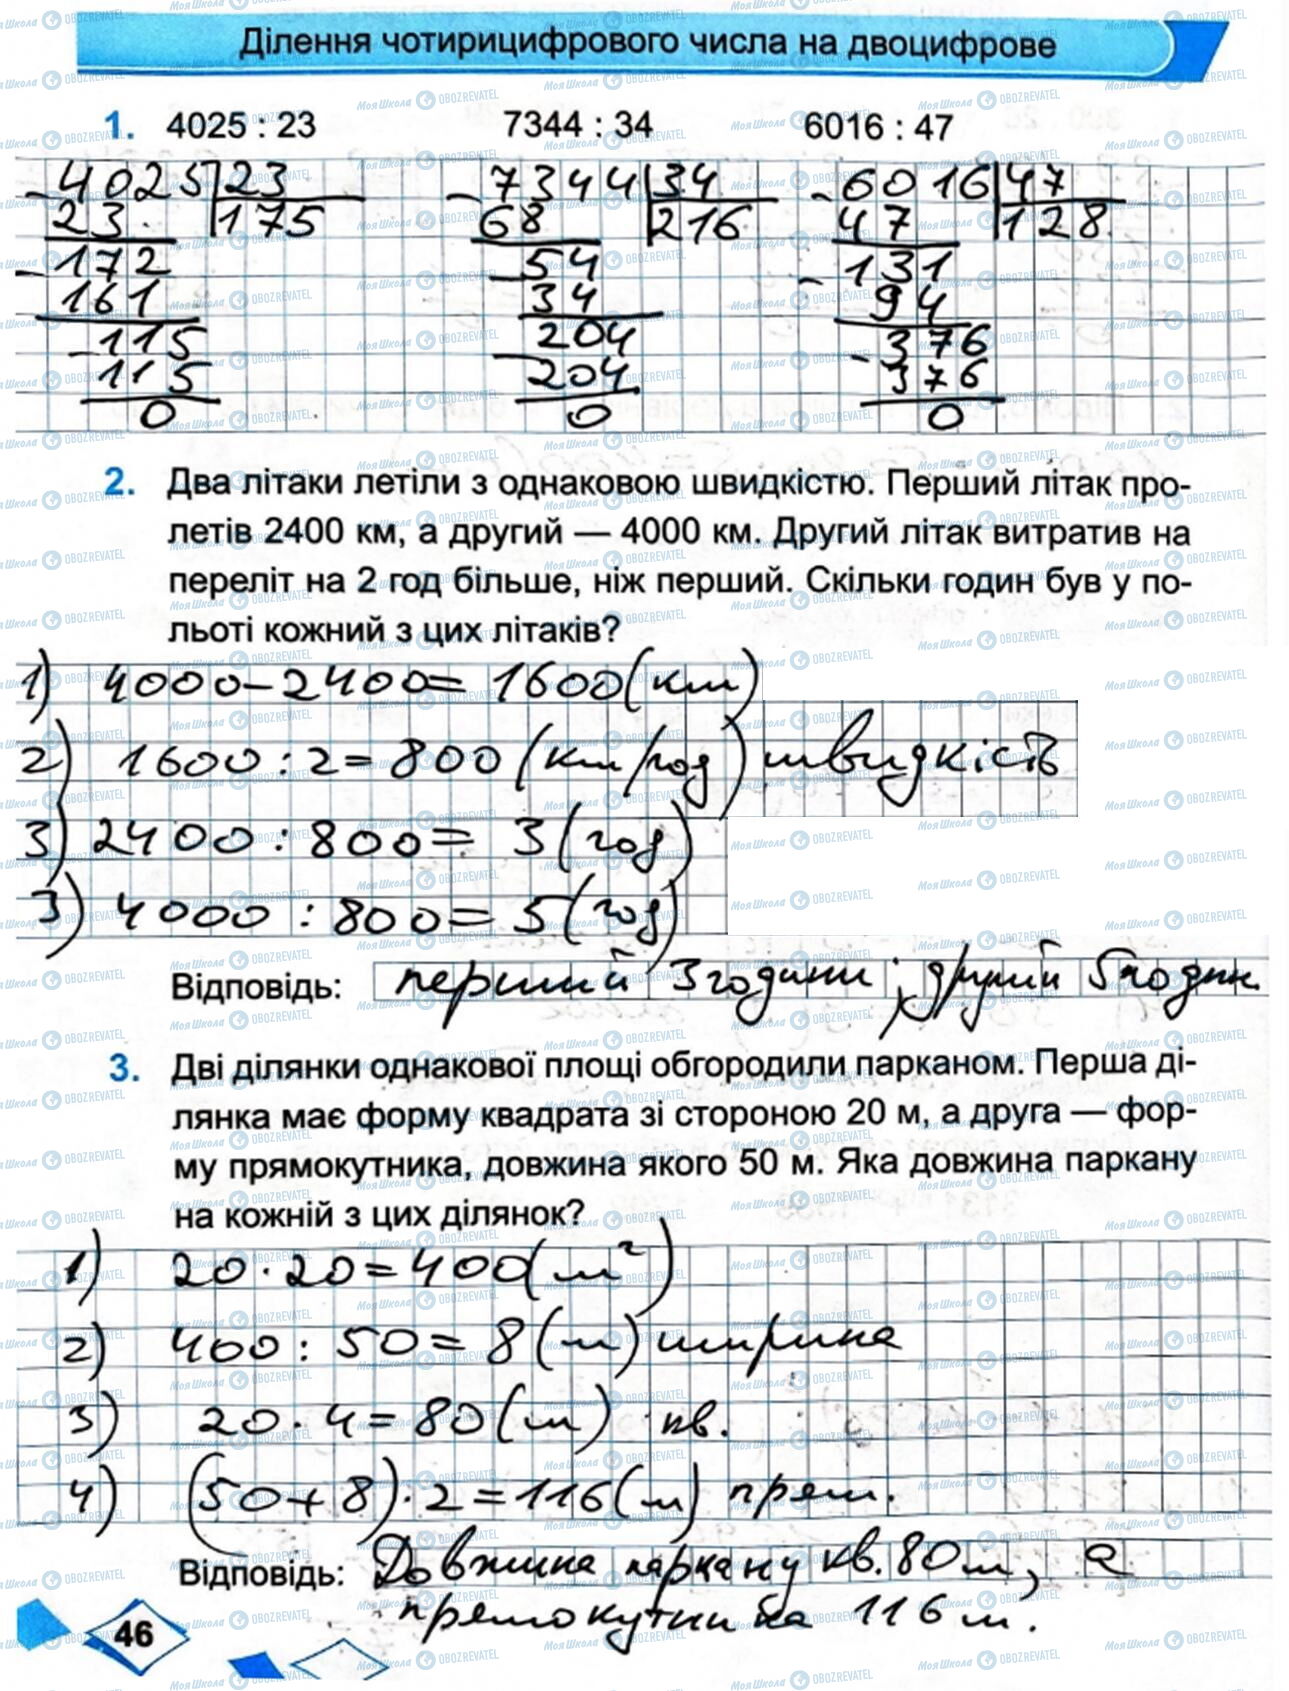 Ділення чотирицифрового числа на двоцифрове
1. 4025 : 23 7344 : 34 6016 : 47
- 4025 23 - 7344 34 - 6016 47
23 175 68 216 47 128
- 172 - 54 - 131
161 34 94
- 115 - 204 - 376
115 204 376
0 0 0
2. Два літаки летіли з однаковою швидкістю. Перший літак про-
летів 2400 км, а другий — 4000 км. Другий літак витратив на
переліт на 2 год більше, ніж перший. Скільки годин був у по-
льоті кожний з цих літаків?
1) 4000-2400=1600(км)
2) 1600:2=800(км/год) швидкість
3) 2400:800=3(год)
3) 4000:800=5(год)
Відповідь: перший 3 години; другий 5 годин.
3. Дві ділянки однакової площі обгородили парканом. Перша ді-
лянка має форму квадрата зі стороною 20 м, а друга — фор-
му прямокутника, довжина якого 50 м. Яка довжина паркану
на кожній з цих ділянок?
1) 20·20=400(м²)
2) 400:50=8(м) ширина
3) 20·4=80(м) кв.
4) (50+8)·2=116(м) прям.
Відповідь: Довжина паркану кв. 80 м, а
прямокутника 116 м.
46
МояШкола OBOZREVATEL